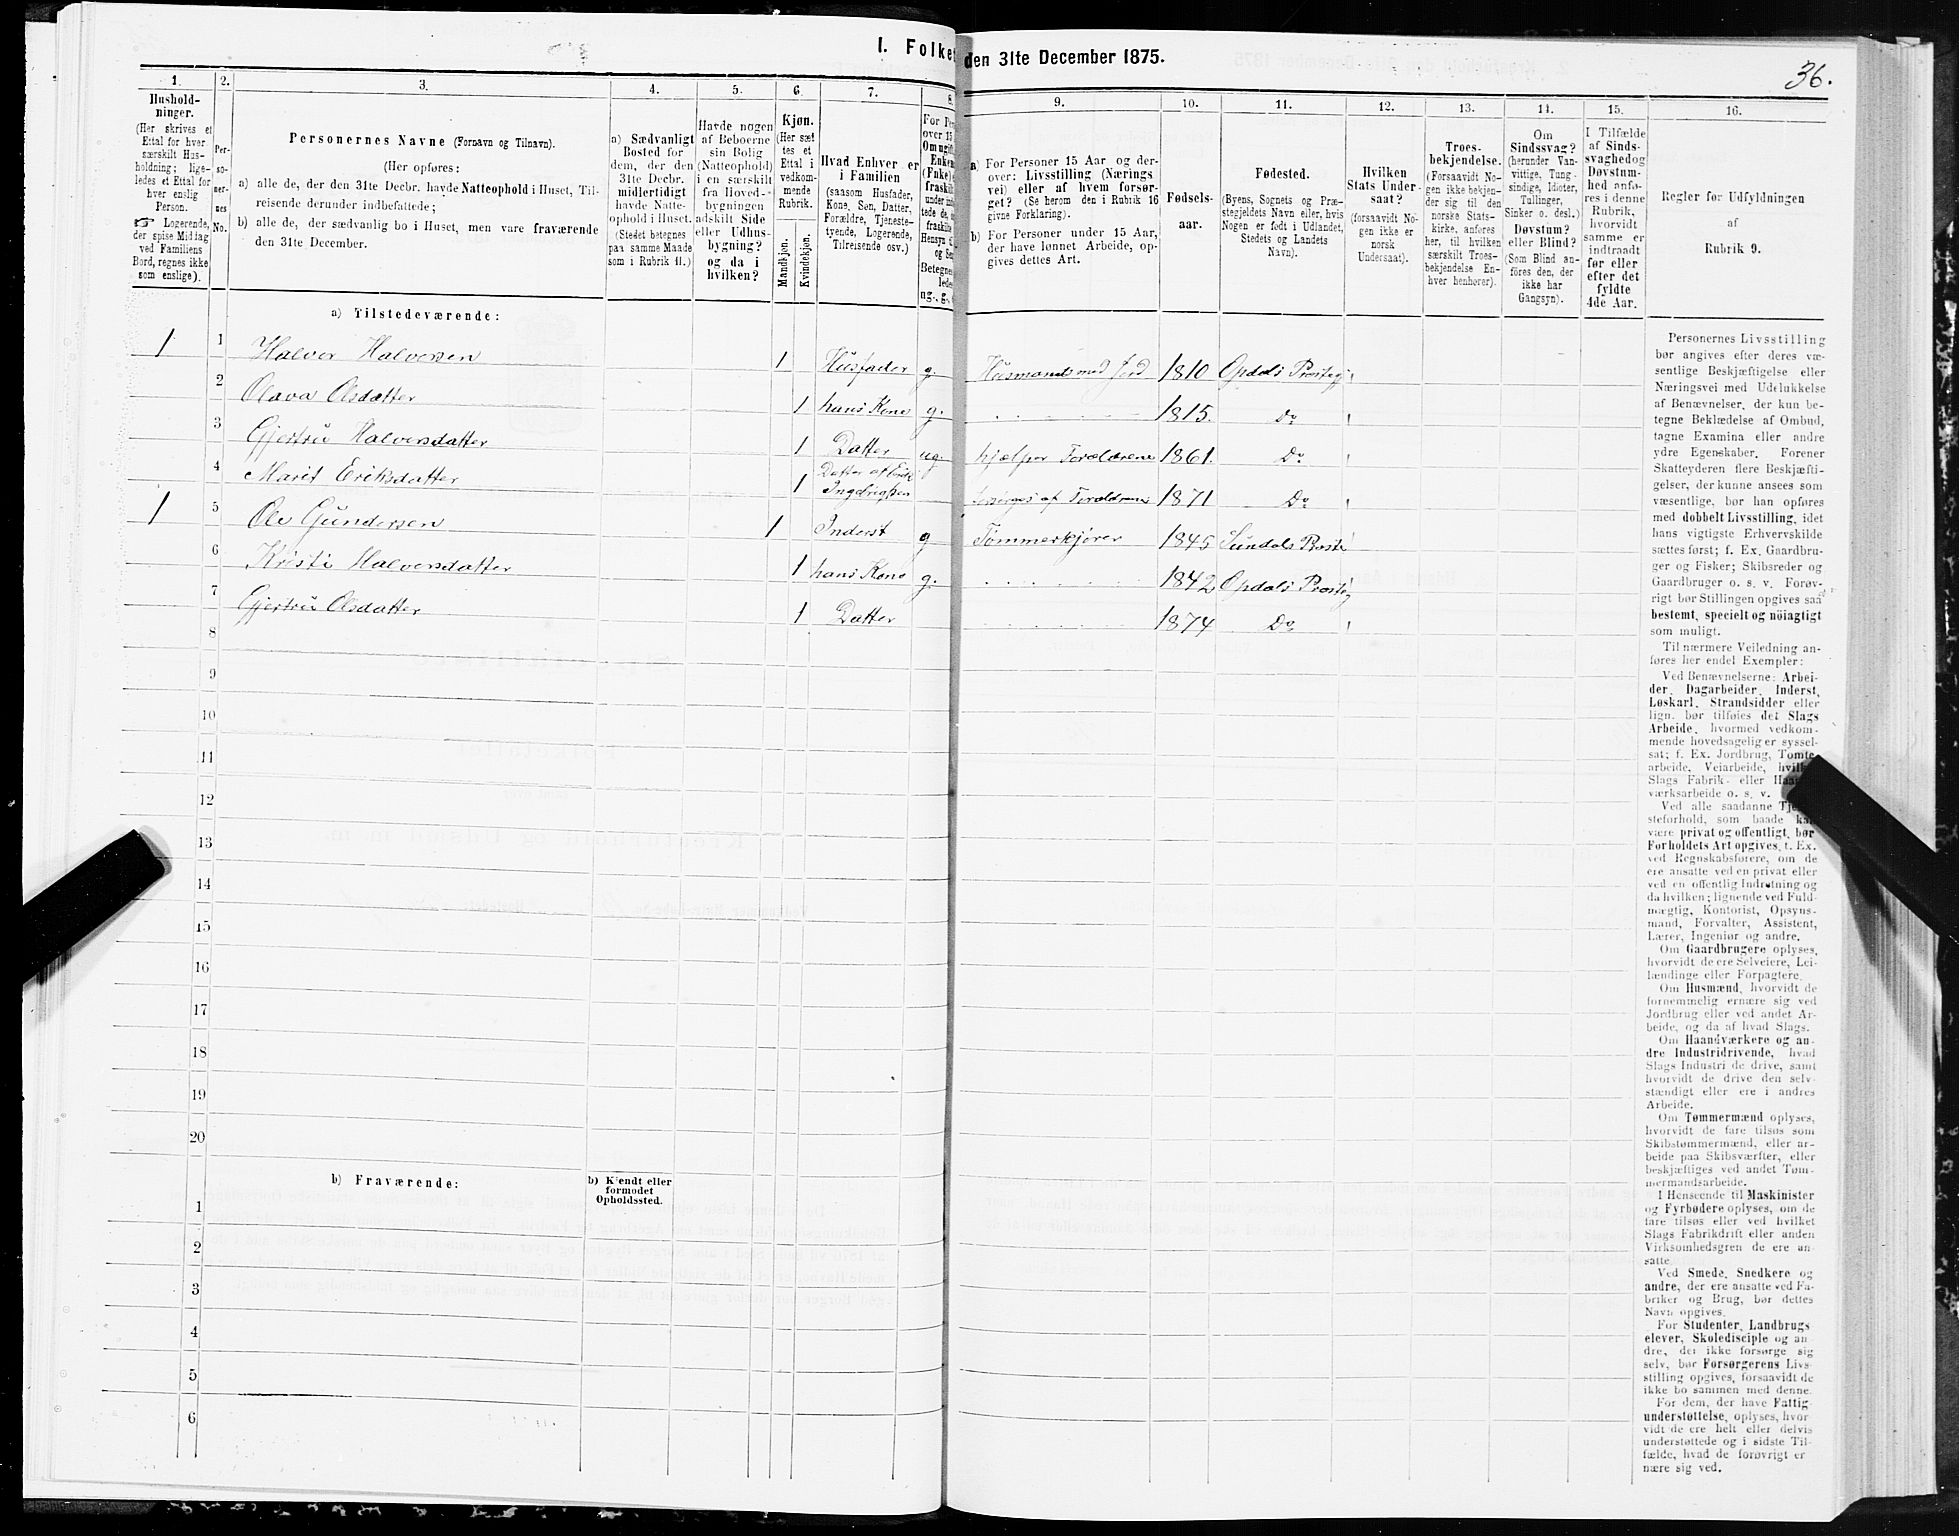 I. Folket
den 31te December 1875.
36.
1.
2.
3.
4.
5.
6.
7.
8.
9.
10.
11.
12.
13.
14.
15.
16.
Hushold-
ninger.
(Her skrives et
Ettal for hver
særskilt Hus-
holdning; lige-
ledes et Ettal for
hver enslig
Person.
☞ Logerende,
der spise Middag
ved Familiens
Bord, regnes ikke
som enslige).
Per-
so-
ner-
nes
No.
Personernes Navne (Fornavn og Tilnavn).
(Her opføres:
a) alle de, der den 31te Decbr. havde Natteophold i Huset, Til-
reisende derunder indbefattede;
b) alle de, der sædvanlig bo i Huset, men vare fraværende
den 31te December.
a) Sædvanligt
Bosted for
dem, der den
31te Decbr.
midlertidigt
havde Natte-
ophold i Huset.
(Stedet betegnes
paa samme Maade
som i Rubrik 11.)
Havde nogen
af Beboerne
sin Bolig
(Natteophold)
i en særskilt
fra Hoved-
bygningen
adskilt Side
eller Udhus-
bygning?
og da i
hvilken?
Kjøn.
(Her sæt
tes et
Ettal i
vedkom-
mende
Rubrik.
Mandkjøn.
Kvindekjøn.
Hvad Enhver er
i Familien
(saasom Husfader,
Kone, Søn, Datter,
Forældre, Tjeneste-
tyende, Logerende,
Tilreisende osv.)
For Pe
over 15
Om ugift
Enken
(Fuke)
fraskil
under ind
tede de,
fraskille
Hensyn
og Se
Betegne
lede
ug., g.,
a) For Personer 15 Aar og der-
over: Livsstilling (Nærings
vei) eller af hvem forsør-
get? (Se herom den i Rubrik 16
givne Forklaring).
b) For Personer under 15 Aar,
der have lønnet Arbeide, op-
gives dettes Art.
Fødsels-
aar.
Fødested.
(Byens, Sognets og Præ-
stegjeldets Navn eller, hvis
Nogen er født i Udlandet,
Stedets og Landets
Navn).
Hvilken
Stats Under-
saat?
(forsaavidt No-
gen ikke er
norsk
Undersaat).
Troes-
bekjendelse.
(Forsaavidt No-
gen ikke bekjen-
der sig til den
norske Stats-
kirke, anføres
her, til hvilken
særskilt Troes-
bekjendelse En-
hver henhører).
Om
Sindssvag?
(herunder Van-
vittige, Tung-
sindige, Idioter,
Tullinger,
Sinker o. desl.)
Døvstum?
eller Blind?
(Som Blind an-
føres den, der
ikke har
Gangsyn).
I Tilfælde
af Sinds-
svaghedog
Døvstum-
hed anfø-
res i denne
Rubrik,
hvorvidt
samme er
indtraadt
før eller
efter det
fyldte
4de Aar.
Regler for Udfyldningen
af
Rubrik 9.
a) Tilstedeværende:
1 1 Halver Halversen 1 Husfader g. Husmand med Jord 1810 Opdals Prosteg
2 Olava Olsdatter 1 hans Kone g. 1815. Do
3 Gjertru Halversdatter 1 Datter ug. hjælper Forældrene 1861. Do
4 Marit Eriksdatter 1 Datter af Erik Ingebrigtsen forsørges af Forældrene 1871 Do
1 5 Ole Gundersen 1 Inderst g Tømmerkjører 1845 Sundals Prosti
6 Kristi Halversdatter 1 hans Kone g. 1842 Opdals Prosteg
7 Gjertru Olsdatter 1 Datter 1874 Do
8
9
10
11
12
13
14
15
16
17
18
19
20
b) Fraværende:
b) Kjendt eller
formodet
Opholdssted.
1
2
3
4
5
6
Personernes Livsstilling
bør angives efter deres væ-
sentlige Beskjæftigelse eller
Næringsvei med Udelukkelse
af Benævnelser, der kun be-
tegne Beklædelse af Ombud,
tagne Examina eller andre
ydre Egenskaber. Forener
Skatteyderen flere Beskjæfti-
gelser, der kunne ansees som
væsentlige, bør han opføres
med dobbelt Livsstilling, idet
hans vigtigste Erhvervskilde
sættes først; f. Ex. Gaardbru-
ger og Fisker; Skibsreder og
Gaardbruger o. s. v. Forøv-
rigt bør Stillingen opgives saa
bestemt, specielt og nöiagtigt
som muligt.
Til nærmere Veiledning an-
føres her endel Exempler:
Ved Benævnelserne: Arbei-
der, Dagarbeider, Inderst,
Løskarl, Strandsidder eller
lign. bør tilføies det Slags
Arbeide, hvormed vedkom-
mende hovedsagelig er syssel-
sat; f. Ex. Jordbrug, Tomte-
arbeide, Veiarbeide, hvil
Slags Fabrik- eller Haa
værksarbeide o. s. v.
Ved alle saadanne Tje
steforhold, som baade ka
være privat og offentligt, bør
Forholdets Art opgives, f. Ex.
ved Regnskabsførere, om de
ere ansatte ved en privat eller
ved en offentlig Indretning og
da hvilken; lignende ved Fuld-
mægtig, Kontorist, Opsyns-
mand, Forvalter, Assistent,
Lærer, Ingeniør og andre.
Om Gaardbrugere oplyses,
hvorvidt de ere Selveiere, Lei-
lændinge eller Forpagtere.
Om Husmænd, hvorvidt de
fornemmelig ernære sig ved
Jordbrug eller ved andet Ar-
beide, og da af hvad Slags.
Om Haandværkere og an-
dre Industridrivende, hvad
Slags Industri de drive, samt
hvorvidt de drive den selv-
stændigt eller ere i andres
Arbeide.
Om Tømmermænd oplyses,
hvorvidt de fare tilsøs som
Skibstømmermænd, eller ar-
beide paa Skibsværfter, eller
beskjæftiges ved andet Tøm-
mermandsarbeide.
I Henseende til Maskinister
og Fyrbødere oplyses, om de
fare tilsøs eller ved hvilket
Slags Fabrikdrift eller anden
Virksomhedsgren de ere an-
satte.
Ved Smede, Snedkere og
andre, der ere ansatte ved Fa-
briker og Brug, bør dettes
Navn opgives.
For Studenter, Landbrugs
elever, Skoledisciple og an-
dre, der ikke forsørge sig
selv, bør Forsørgerens Livs-
stilling opgives, forsaavidt de
ikke bo sammen med denne.
For dem, der have Fattig-
understøttelse, oplyses, hvor
vidt de ere helt eller delvis
understøttede og i sidste Til-
fælde, hvad de forøvrigt er
nære sig ved.